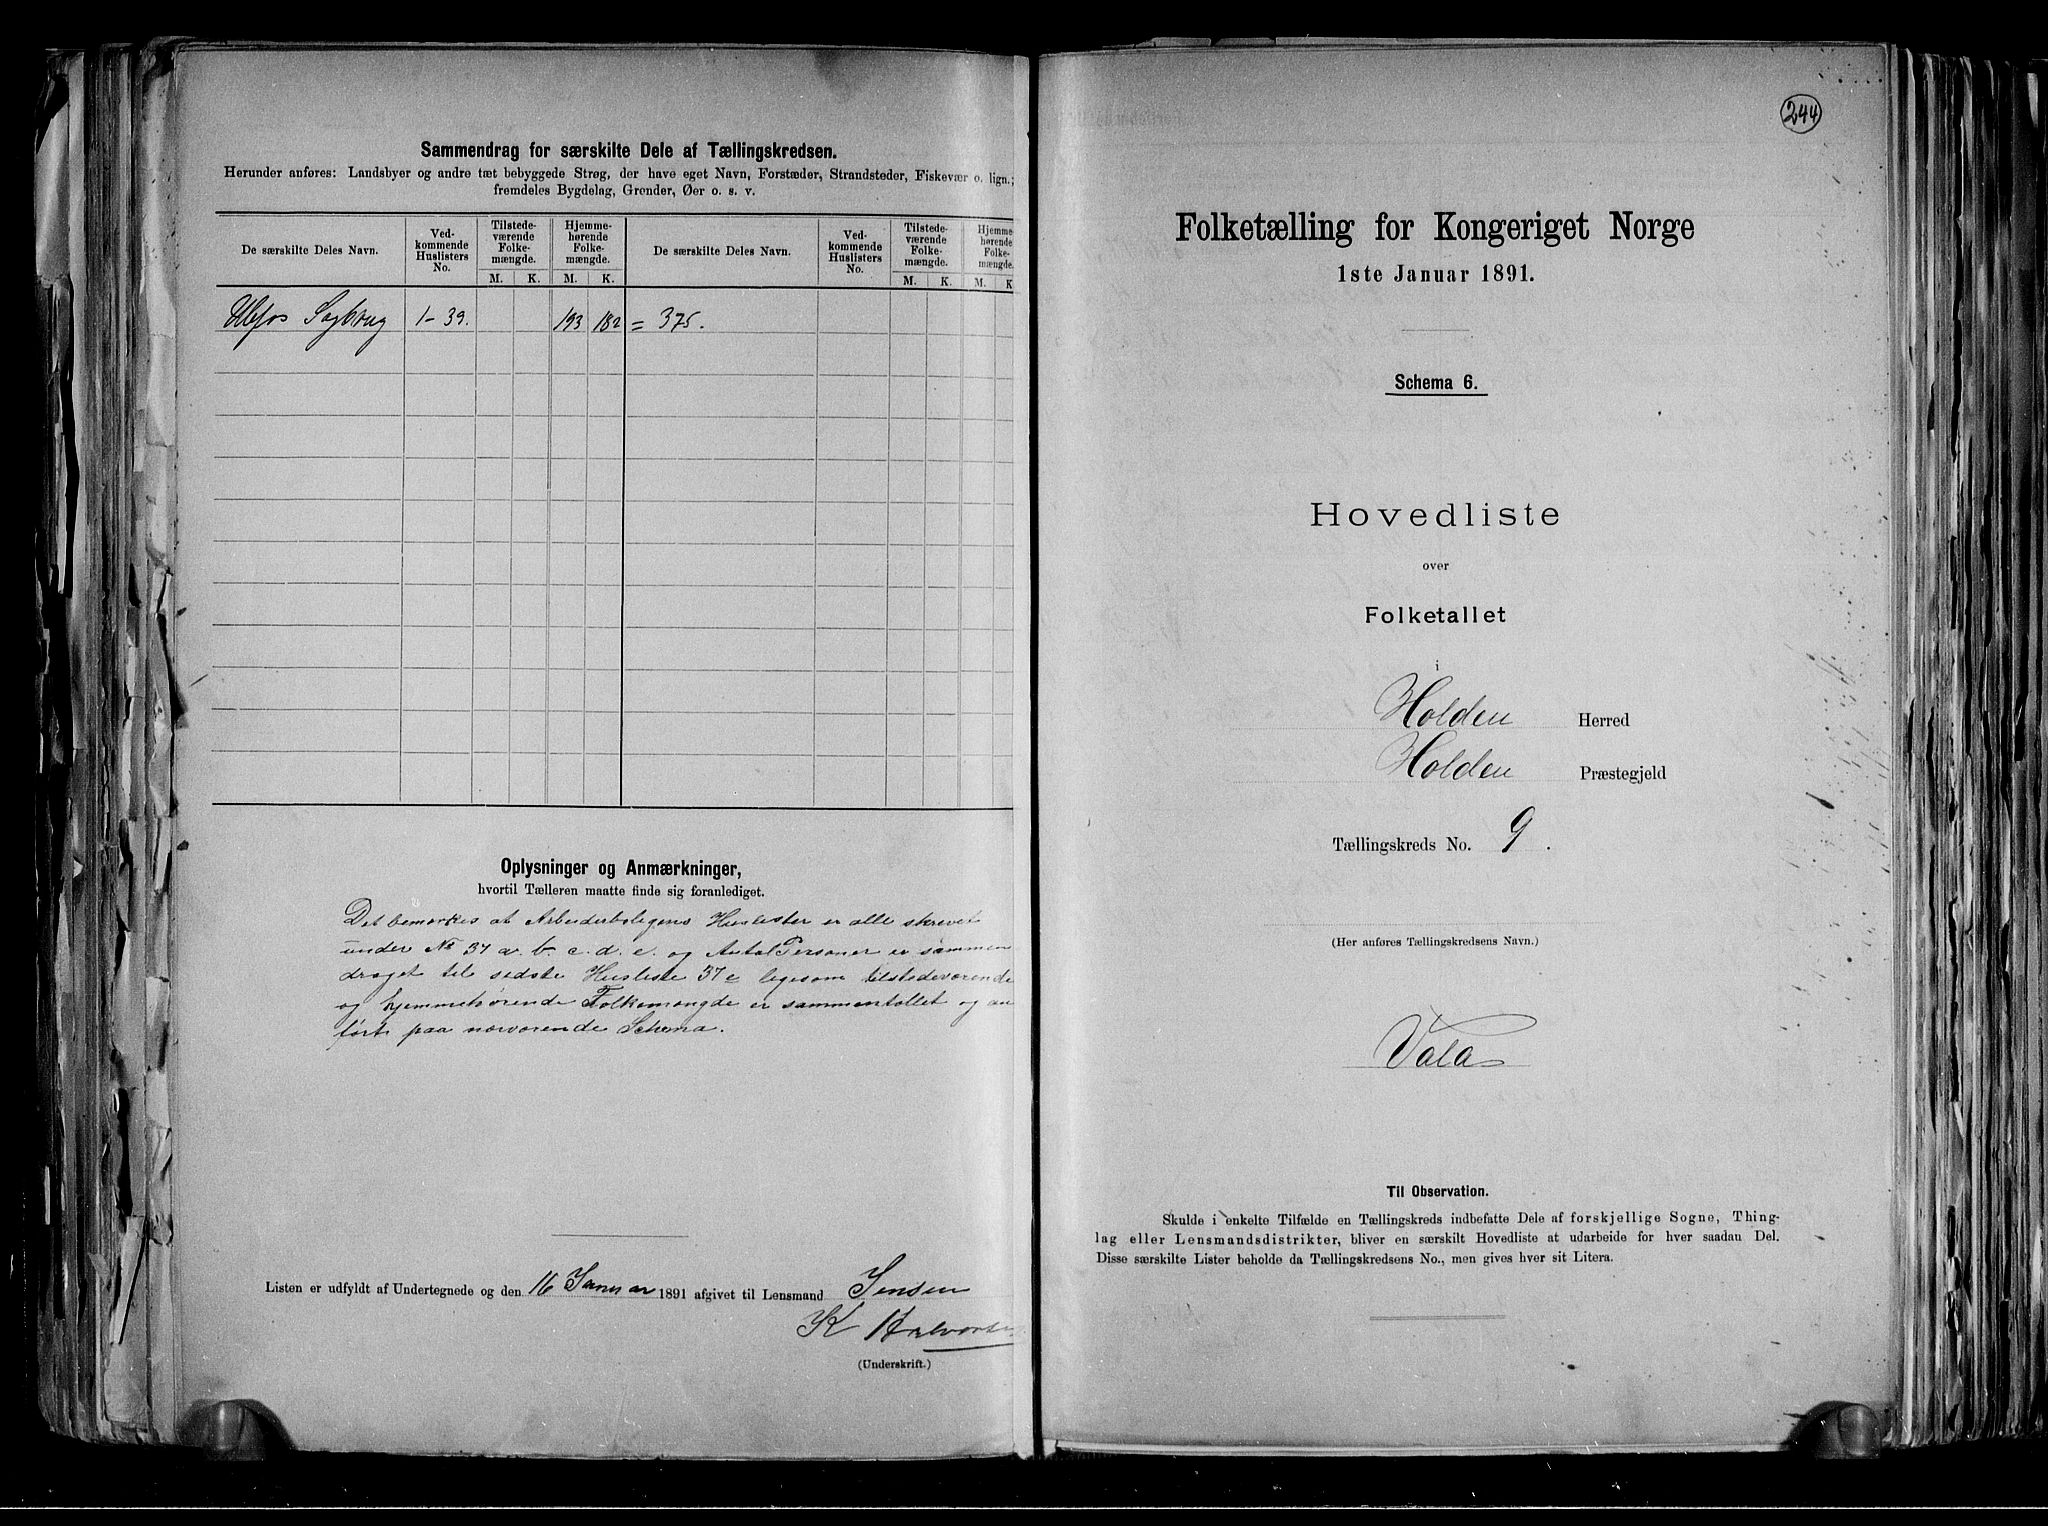 Sammendrag for særskilte Dele af Tællingskredsen.
Herunder anføres: Landsbyer og andre tæt bebyggede Strøg, der have eget Navn, Forstæder, Strandsteder, Fiskevær o. lign.;
fremdeles Bygdelag, Grender, Øer o. s. v.
De særskilte Deles Navn. Ved-kommende Huslisters No. Tilstede-værende Folke-mængde. Hjemme-hørende Folke-mængde. De særskilte Deles Navn. Ved-kommende Huslisters No. Tilstede-værende Folke-mængde. Hjemme-hørende Folke-mængde.
M. K. M. K. M. K. M. K
Ulefos Sagbrug 1-39. 193 182 = 375.
Oplysninger og Anmærkninger,
hvortil Tælleren maatte finde sig foranlediget.
Det bemerkes at Arbeiderboligens Huslister er alle skrevet
under No 37 a. b. c. d. e. og Antal Personer er sammen
draget til sidste Husliste 37e ligesom tilstedeværende
og hjemmehørende Folkemængde er sammentallet og an
ført paa nærværende Schema.
Listen er udfyldt af Undertegnede og den 16 Januar 1891 afgivet til Lensmand Jensen
K Halvorsen
(Underskrift.)
244
Folketælling for Kongeriget Norge
1ste Januar 1891.
Schema 6.
Hovedliste
over
Folketallet
i
Holden Herred
Holden Præstegjeld
Tællingskreds No. 9.
(Her anføres Tællingskredsens Navn.)
Vala
Til Observation.
Skulde i enkelte Tilfælde en Tællingskreds indbefatte Dele af forskjellige Sogne, Thing-
lag eller Lensmandsdistrikter, bliver en særskilt Hovedliste at udarbeide for hver saadan Del.
Disse særskilte Lister beholde da Tællingskredsens No., men gives hver sit Litera.